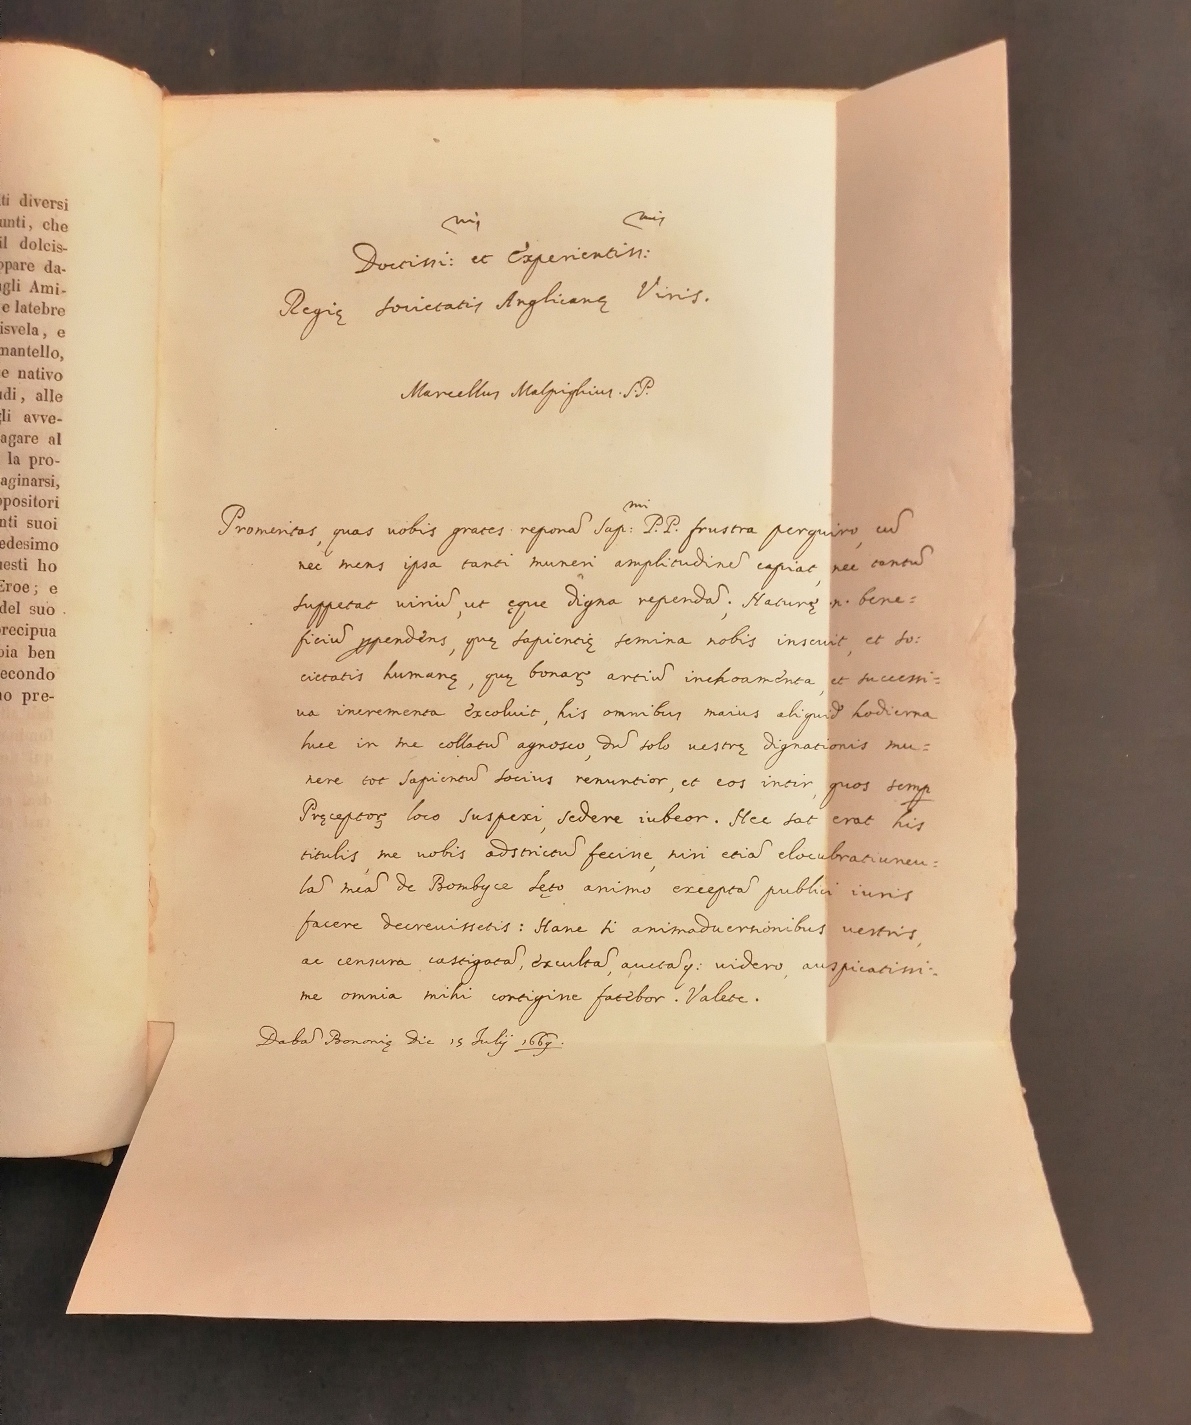 ti diversi
unti, che
il dolcis-
ppare da-
gli Ami-
e latebre
isvela, e
mantello,
e nativo
di, alle
gli avve-
agare al
la pro-
aginarsi,
positori
nti suoi
edesimo
uesti ho
Eroe; e
del suo
precipua
bia ben
secondo
no pre-
mi̅s mis
Doctissi: et Experientiss:
Regię Societatis Anglicanę Viris.
Marcellus Malpighius. S.P.
mi
Promeritas, quas uobis grates reponā Sap: P.P. frustra perquiro, cū
nec mens ipsa tanti muneri amplitudinē capiat, nec tantū
suppetat uiriū, ut ęque digna rependā; Naturę .n. bene=
ficiū ꝑpendens, quę sapientię semina nobis inseuit, et so:
cietatis humanę, quę bonaꝝ artiū inchoamenta, et successi=
ua incrementa excoluit, his omnibus maius aliquid hodierna
luce in me collatū agnosco, dū solo uestrę dignationis mu=
nere tot Sapientū socius renuntior, et eos inter, quos semꝑ
Pręceptoꝝ loco suspexi, sedere iubeor. Hec sat erat his
titulis, me uobis adstrictū fecisse, nisi etiā elocubratiuncu=
lā meā de Bombyce lęto animo exceptā publici iuris
facere decreuissetis: Hanc si animaduersionibus uestris,
ac censura castigatā, excultā, auctāq: uidero, auspicatissi=
me omnia mihi contigisse fatebor. Valete.
Dabā Bononię die 15 Julij 1669.